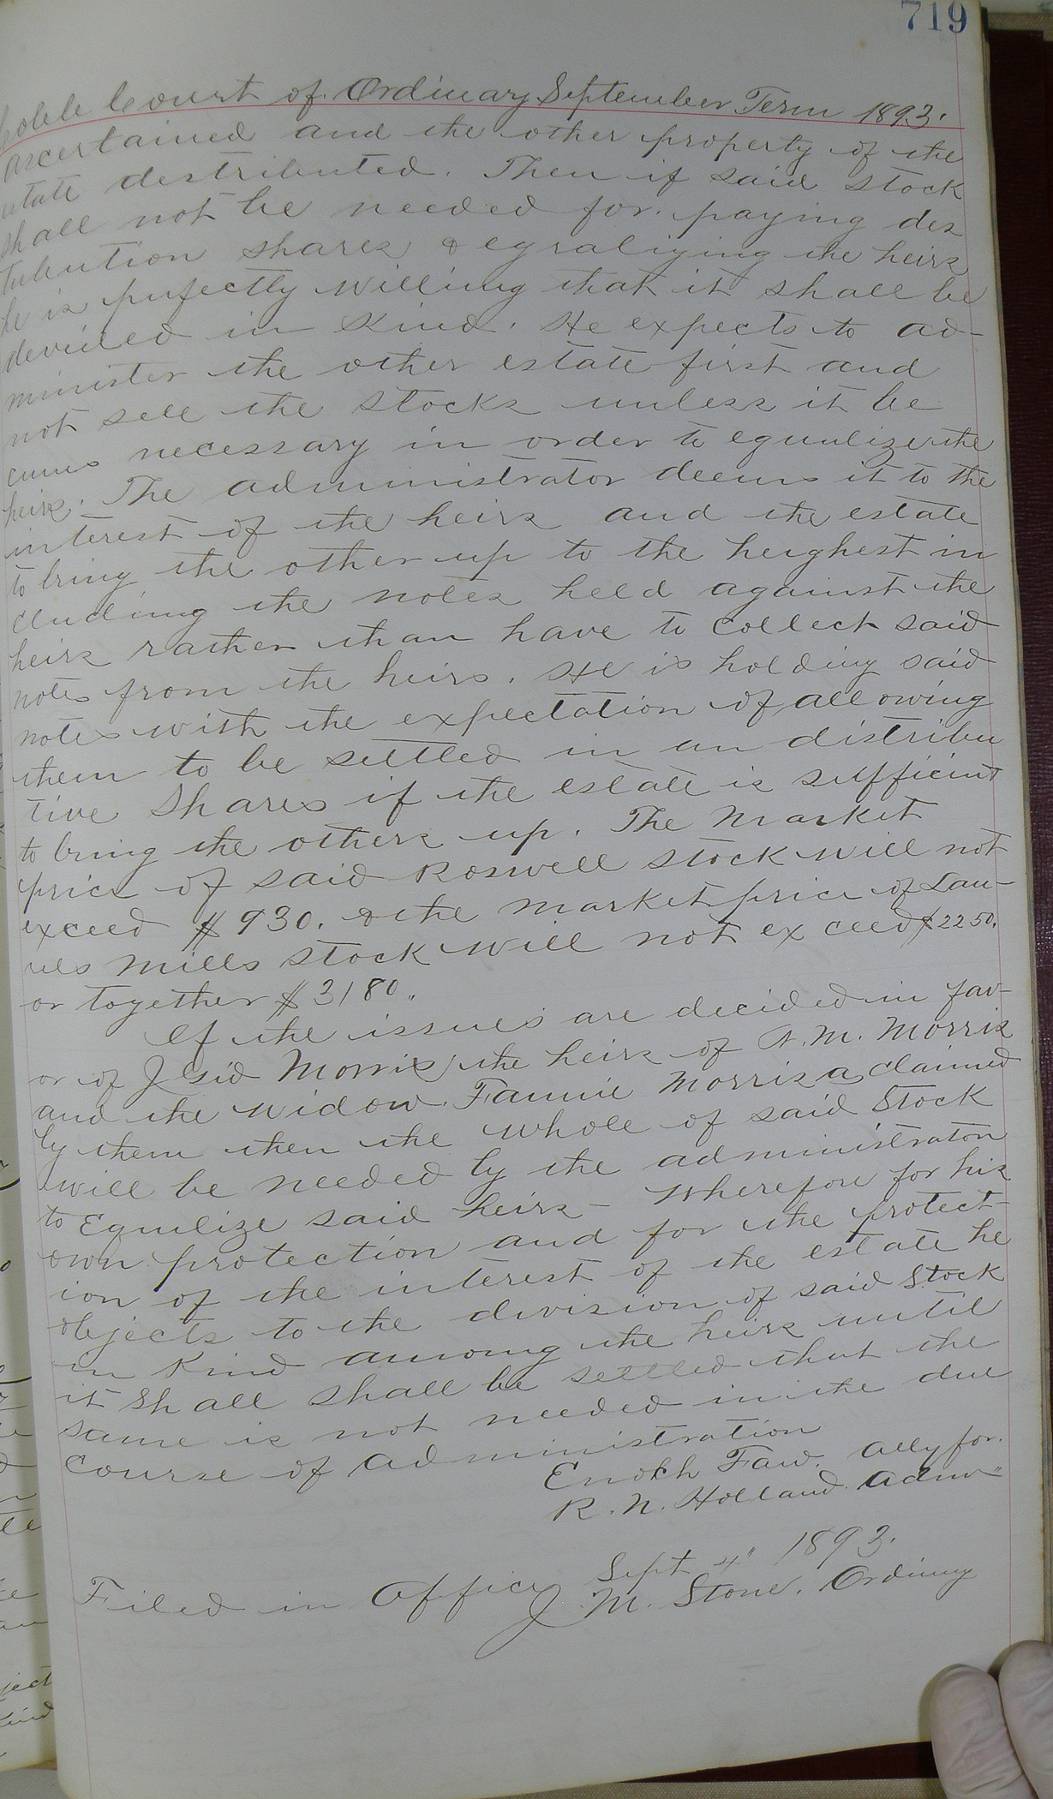 719
Cobb Court of Ordinary September Term 1893.
ascertained and the other property of the
estate destributed. Then if said stock
shall not be needed for paying des
tribution shares & egraliging the heirs
he is pufectly willing that it shall be
devided in Kind. He expects to ad-
minister the other estate first and
not sell the stocks unless it be
cums necessary in order to equalize the
heirs. The administrator deems it to the
interest of the heirs and the estate
to bring the other up to the heighest in
cluding the notes held against the
heirs rather than have to collect said
notes from the heirs. He is holding said
notes with the expectation of allowing
them to be settled in an distribu
tive Shares if the estate is sufficient
to bring the others up. The Market
price of said Roswell stock will not
exceed $930. & the market price of Lau-
rels Mills stock will not exceed $2250.
or together $3180.
If the issues are decided in fav-
or of J Sid Morris, the heirs of A. M. Morris
and the Widow Fannie Morris as claimed
by them then the whole of said Stock
will be needed by the administrator
to Equilize said heirs - Wherefore for his
own protection and for the protect-
ion of the interest of the estate he
objects to the division of said Stock
in Kind among the heirs until
it Shall shall be settled that the
same is not needed in the due
course of administration
Enoch Faw. atty for.
R. N. Holland Admr
Filed in Office Sept 4" 1893.
J. M. Stone. Ordinary